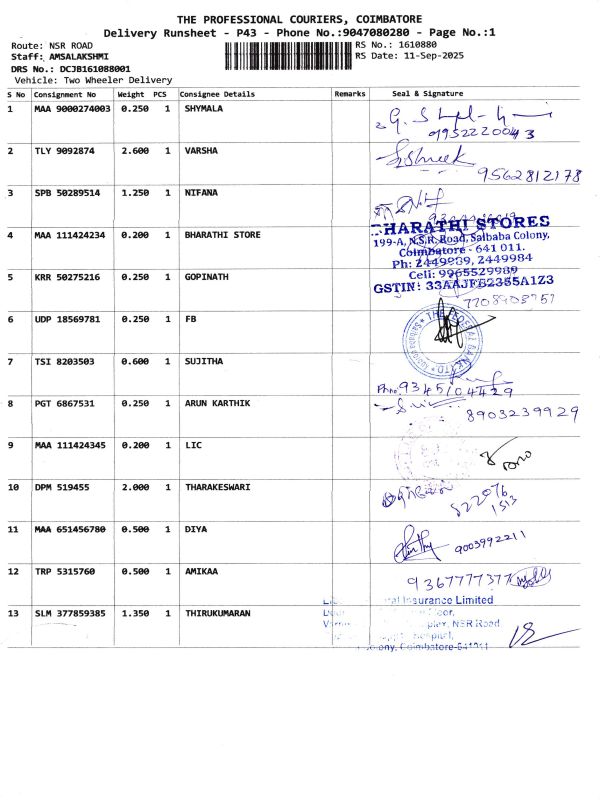 THE PROFESSIONAL COURIERS, COIMBATORE
Delivery Runsheet - P43 - Phone No.:9047080280 - Page No.:1
Route: NSR ROAD
Staff: AMSALAKSHMI
DRS No.: DCJB161088001
Vehicle: Two Wheeler Delivery
RS No.: 1610880
RS Date: 11-Sep-2025
S No Consignment No Weight PCS Consignee Details Remarks Seal & Signature
1 MAA 9000274003 0.250 1 SHYMALA
9952220043
2 TLY 9092874 2.600 1 VARSHA
9562812178
3 SPB 50289514 1.250 1 NIFANA
4 MAA 111424234 0.200 1 BHARATHI STORE
BHARATHI STORES
199-A, N.S.R. Road, Saibaba Colony,
Coimbatore - 641 011.
Ph: 2449989, 2449984
Cell: 9965529989
GSTIN: 33AAJFB2355A1Z3
5 KRR 50275216 0.250 1 GOPINATH
7708908757
6 UDP 18569781 0.250 1 FB
THE FEDERAL BANK LTD
7 TSI 8203503 0.600 1 SUJITHA
Phno: 9345104429
8 PGT 6867531 0.250 1 ARUN KARTHIK
8903239929
9 MAA 111424345 0.200 1 LIC
10 DPM 519455 2.000 1 THARAKESWARI
522076
1513
11 MAA 651456780 0.500 1 DIYA
9003992211
12 TRP 5315760 0.500 1 AMIKAA
9367777377
13 SLM 377859385 1.350 1 THIRUKUMARAN
Insurance Limited
NSR Road
Hospital,
Coimbatore-641011